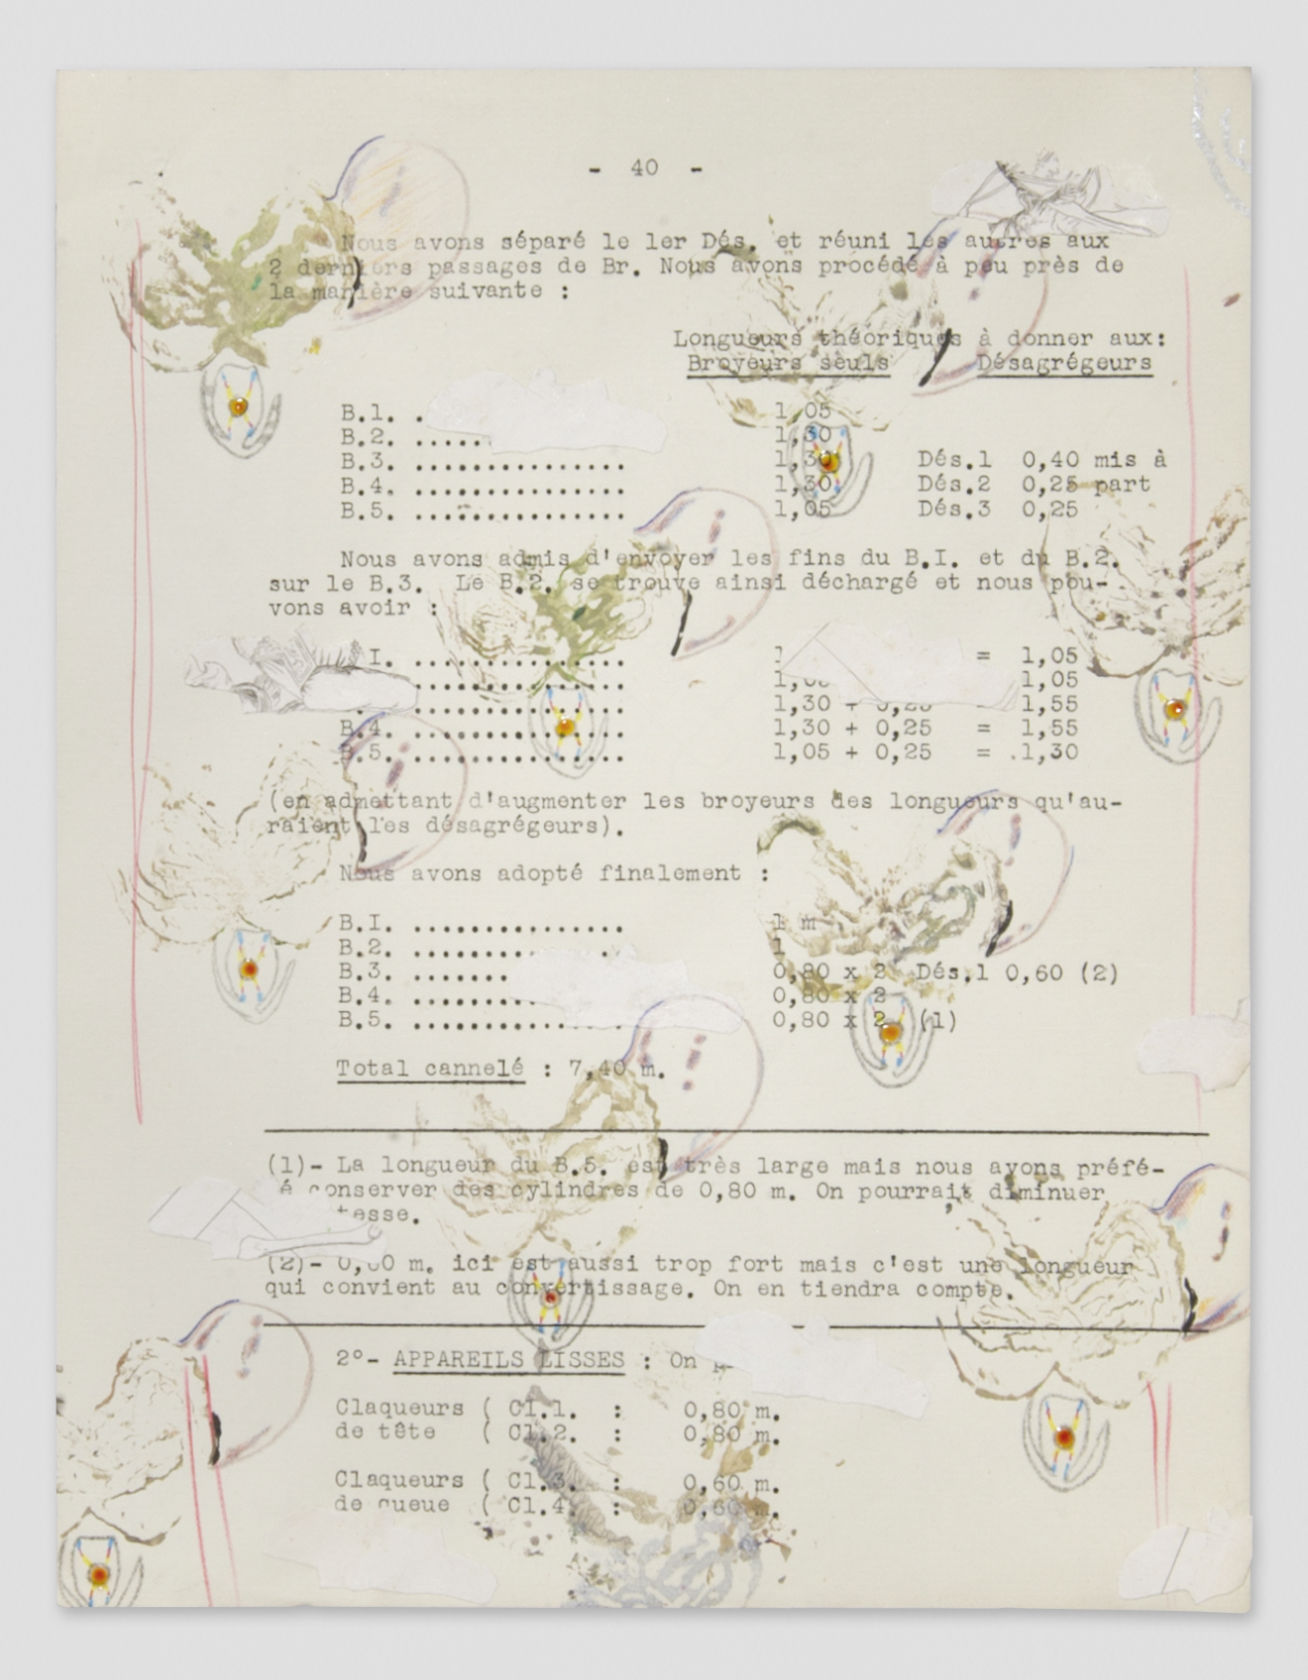 - 40 -
Nous avons séparé le 1er Dés. et réuni les autres aux
2 derniers passages de Br. Nous avons procédé à peu près de
la manière suivante :
Longueurs théoriques à donner aux:
Broyeurs seuls Désagrégeurs
B.1. . 1,05
B.2. ..... 1,30
B.3. ............... 1,30 Dés.1 0,40 mis à
B.4. ............... 1,30 Dés.2 0,25 part
B.5. ............... 1,05 Dés.3 0,25
Nous avons admis d'envoyer les fins du B.I. et du B.2.
sur le B.3. Le B.2. se trouve ainsi déchargé et nous pou-
vons avoir :
I. ............... = 1,05
............... 1,05
............... 1,30 + 0,25 = 1,55
B.4. ............... 1,30 + 0,25 = 1,55
B.5. ............... 1,05 + 0,25 = .1,30
(en admettant d'augmenter les broyeurs des longueurs qu'au-
raient les désagrégeurs).
Nous avons adopté finalement :
B.I. ............... 1 m
B.2. .......... 1
B.3. ....... 0,80 x 2 Dés.1 0,60 (2)
B.4. ......... 0,80 x 2
B.5. ............... 0,80 x 2 (1)
Total cannelé : 7,40 m.
(1)- La longueur du B.5. est très large mais nous avons préfé-
é conserver des cylindres de 0,80 m. On pourrait diminuer
tesse.
(2)- m. ici est aussi trop fort mais c'est une longueur
qui convient au convertissage. On en tiendra compte.
2°- APPAREILS LISSES : On
Claqueurs ( Cl.1. : 0,80 m.
de tête ( Cl.2. : 0,80 m.
Claqueurs ( Cl.3. : 0,60 m.
de queue ( Cl.4. : 0,60 m.